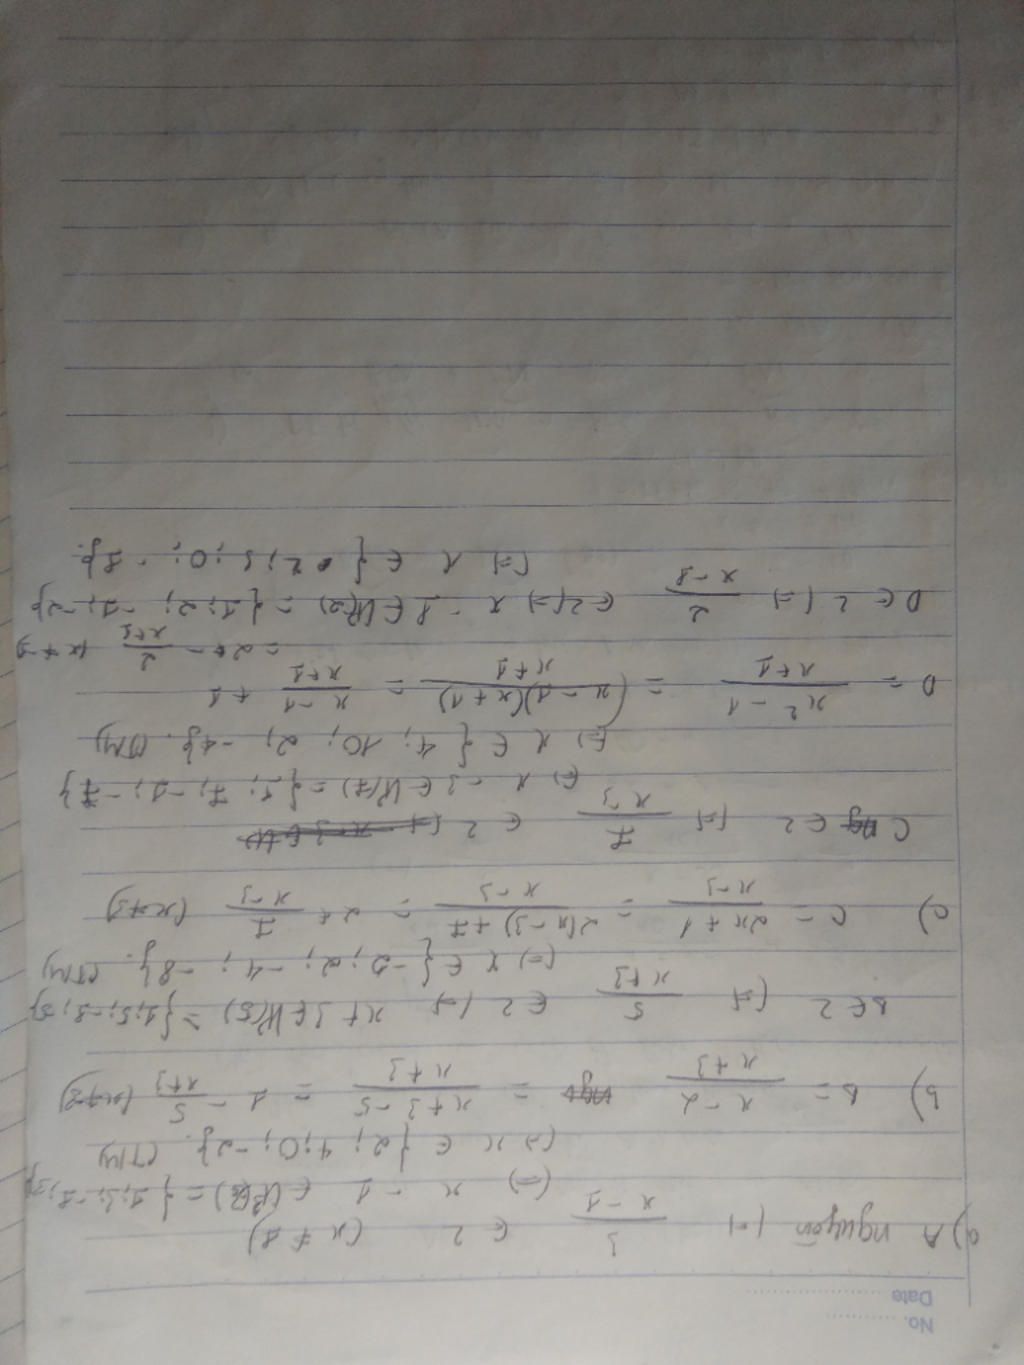 No. ............
Date ....................
a) A nguyên (=) 3/(x-1) ∈ Z (x ≠ 1)
(=) x - 1 ∈ Ư(3) = {1; 3; -1; -3}
(=) x ∈ {2; 4; 0; -2}. (TM)
b) B = (x-2)/(x+3) = (x+3-5)/(x+3) = 1 - 5/(x+3)
B ∈ Z (=) 5/(x+3) ∈ Z (=) x+3 ∈ Ư(5) = {1; 5; -1; -5}
(=) x ∈ {-2; 2; -4; -8}. (TM)
c) C = (2x+1)/(x-3) = (2(x-3)+7)/(x-3) = 2 + 7/(x-3) (x≠3)
C ∈ Z (=) 7/(x-3) ∈ Z
(=) x - 3 ∈ Ư(7) = {1; 7; -1; -7}
(=) x ∈ {4; 10; 2; -4}. (TM)
D = (x²-1)/(x+1) = ((x-1)(x+1))/(x+1) = (x-1)/(x+1) + 1
= 2 - 2/(x+1)
D ∈ Z (=) ∈ Z (=) ∈ Ư(2) = {1; 2; -1; -2}
(=) x ∈ {2; 3; 0; -1}.